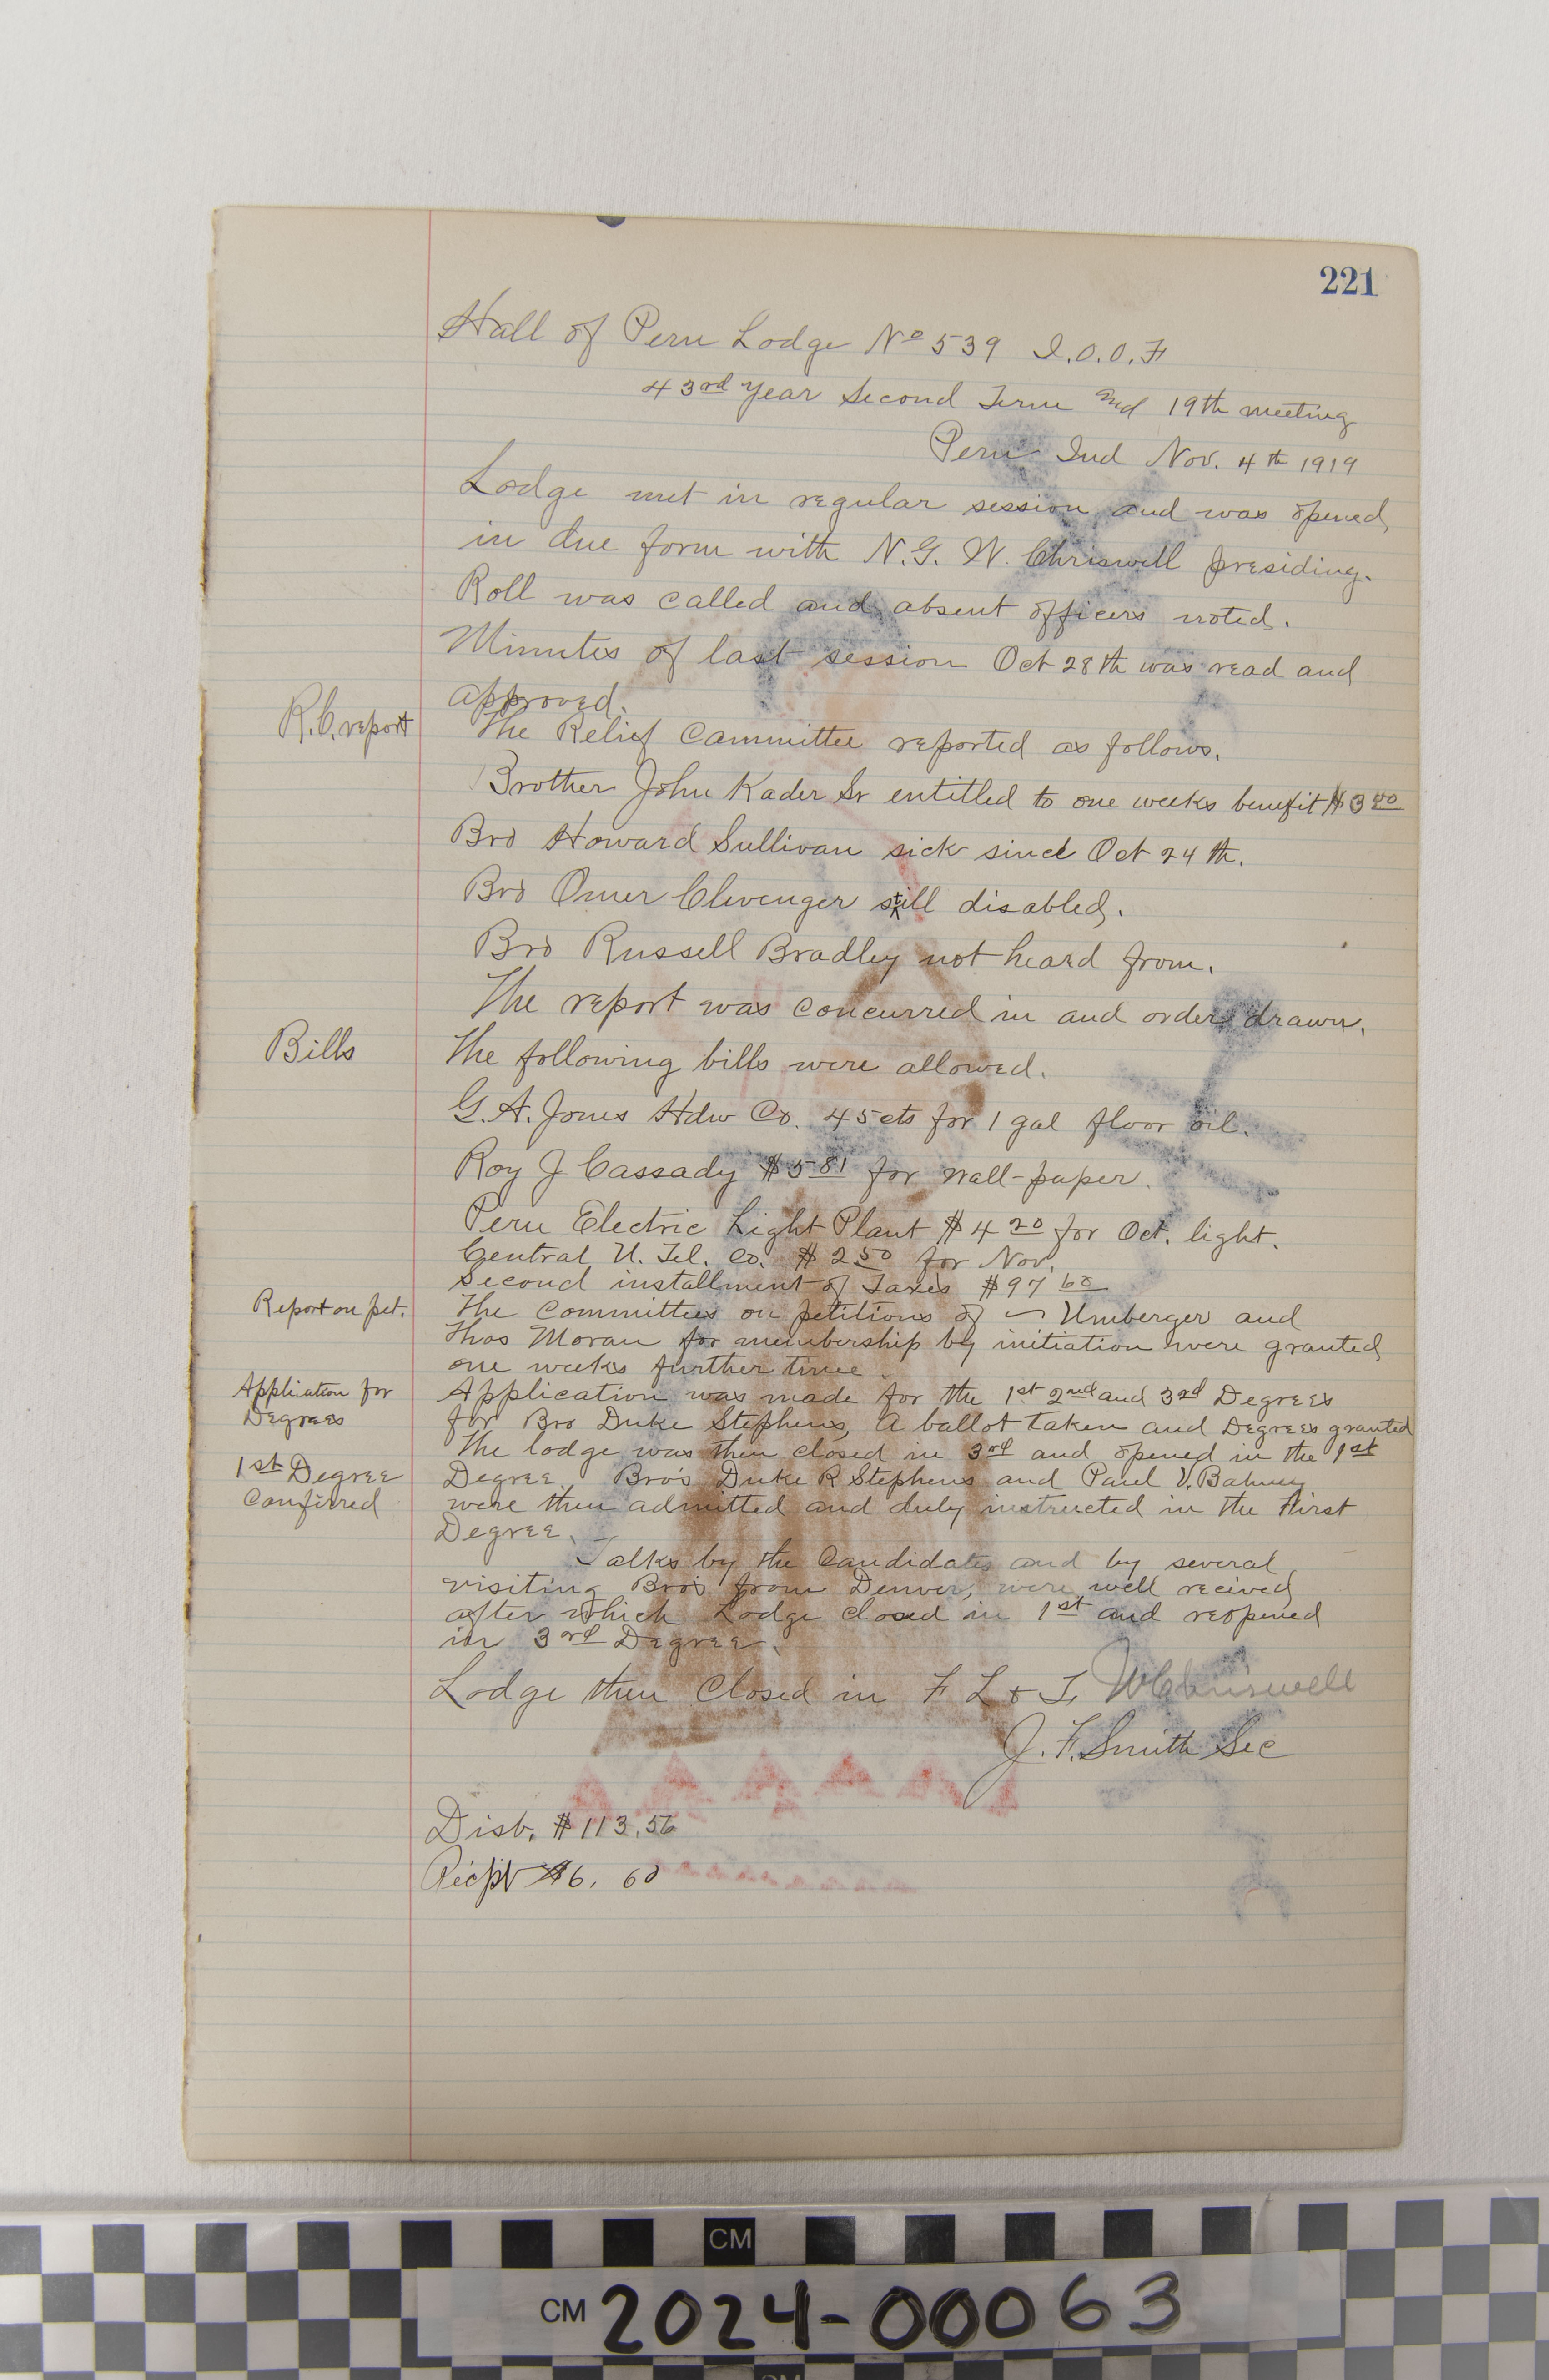 221
Hall of Peru Lodge No 539 I.O.O.F
43rd Year Second Term 19th meeting
Peru Ind Nov. 4th 1919
Lodge met in regular session and was opened
in due form with N.G. W. Chriswell presiding.
Roll was called and absent officers noted.
Minutes of last session Oct 28th was read and
approved.
R.C. report The Relief Committee reported as follows.
Brother John Kader Sr entitled to one weeks benefit $3 00
Bro Howard Sullivan sick since Oct 24th.
Bro Omer Clevenger still disabled.
Bro Russell Bradley not heard from.
The report was concurred in and orders drawn.
Bills The following bills were allowed.
G.A. Jones Hdw Co. 45cts for 1 gal floor oil.
Roy J Cassady $5 81 for wall-paper.
Peru Electric Light Plant $4 20 for Oct. light.
Central U. Tel. Co. $2 50 for Nov.
Second installment of Taxes $97 60
Report on pet. The Committees on petitions of — Umberger and
Thos Moran for membership by initiation were granted
one weeks further time.
Application for Application was made for the 1st 2nd and 3rd Degrees
Degrees for Bro Duke Stephens, A ballot taken and Degrees granted
The lodge was then closed in 3rd and opened in the 1st
1st Degree Degree. Bro's Duke R Stephens and Paul V. Bahney
Conferred were then admitted and duly instructed in the First
Degree.
Talks by the Candidates and by several
visiting Bro's from Denver, were well recived
after which Lodge closed in 1st and reopened
in 3rd Degree.
Lodge then Closed in F L & T. W Chriswell
J. F. Smith Sec
Disb. $113.56
Recpt $6.60
CM
CM 2024-00063
CM